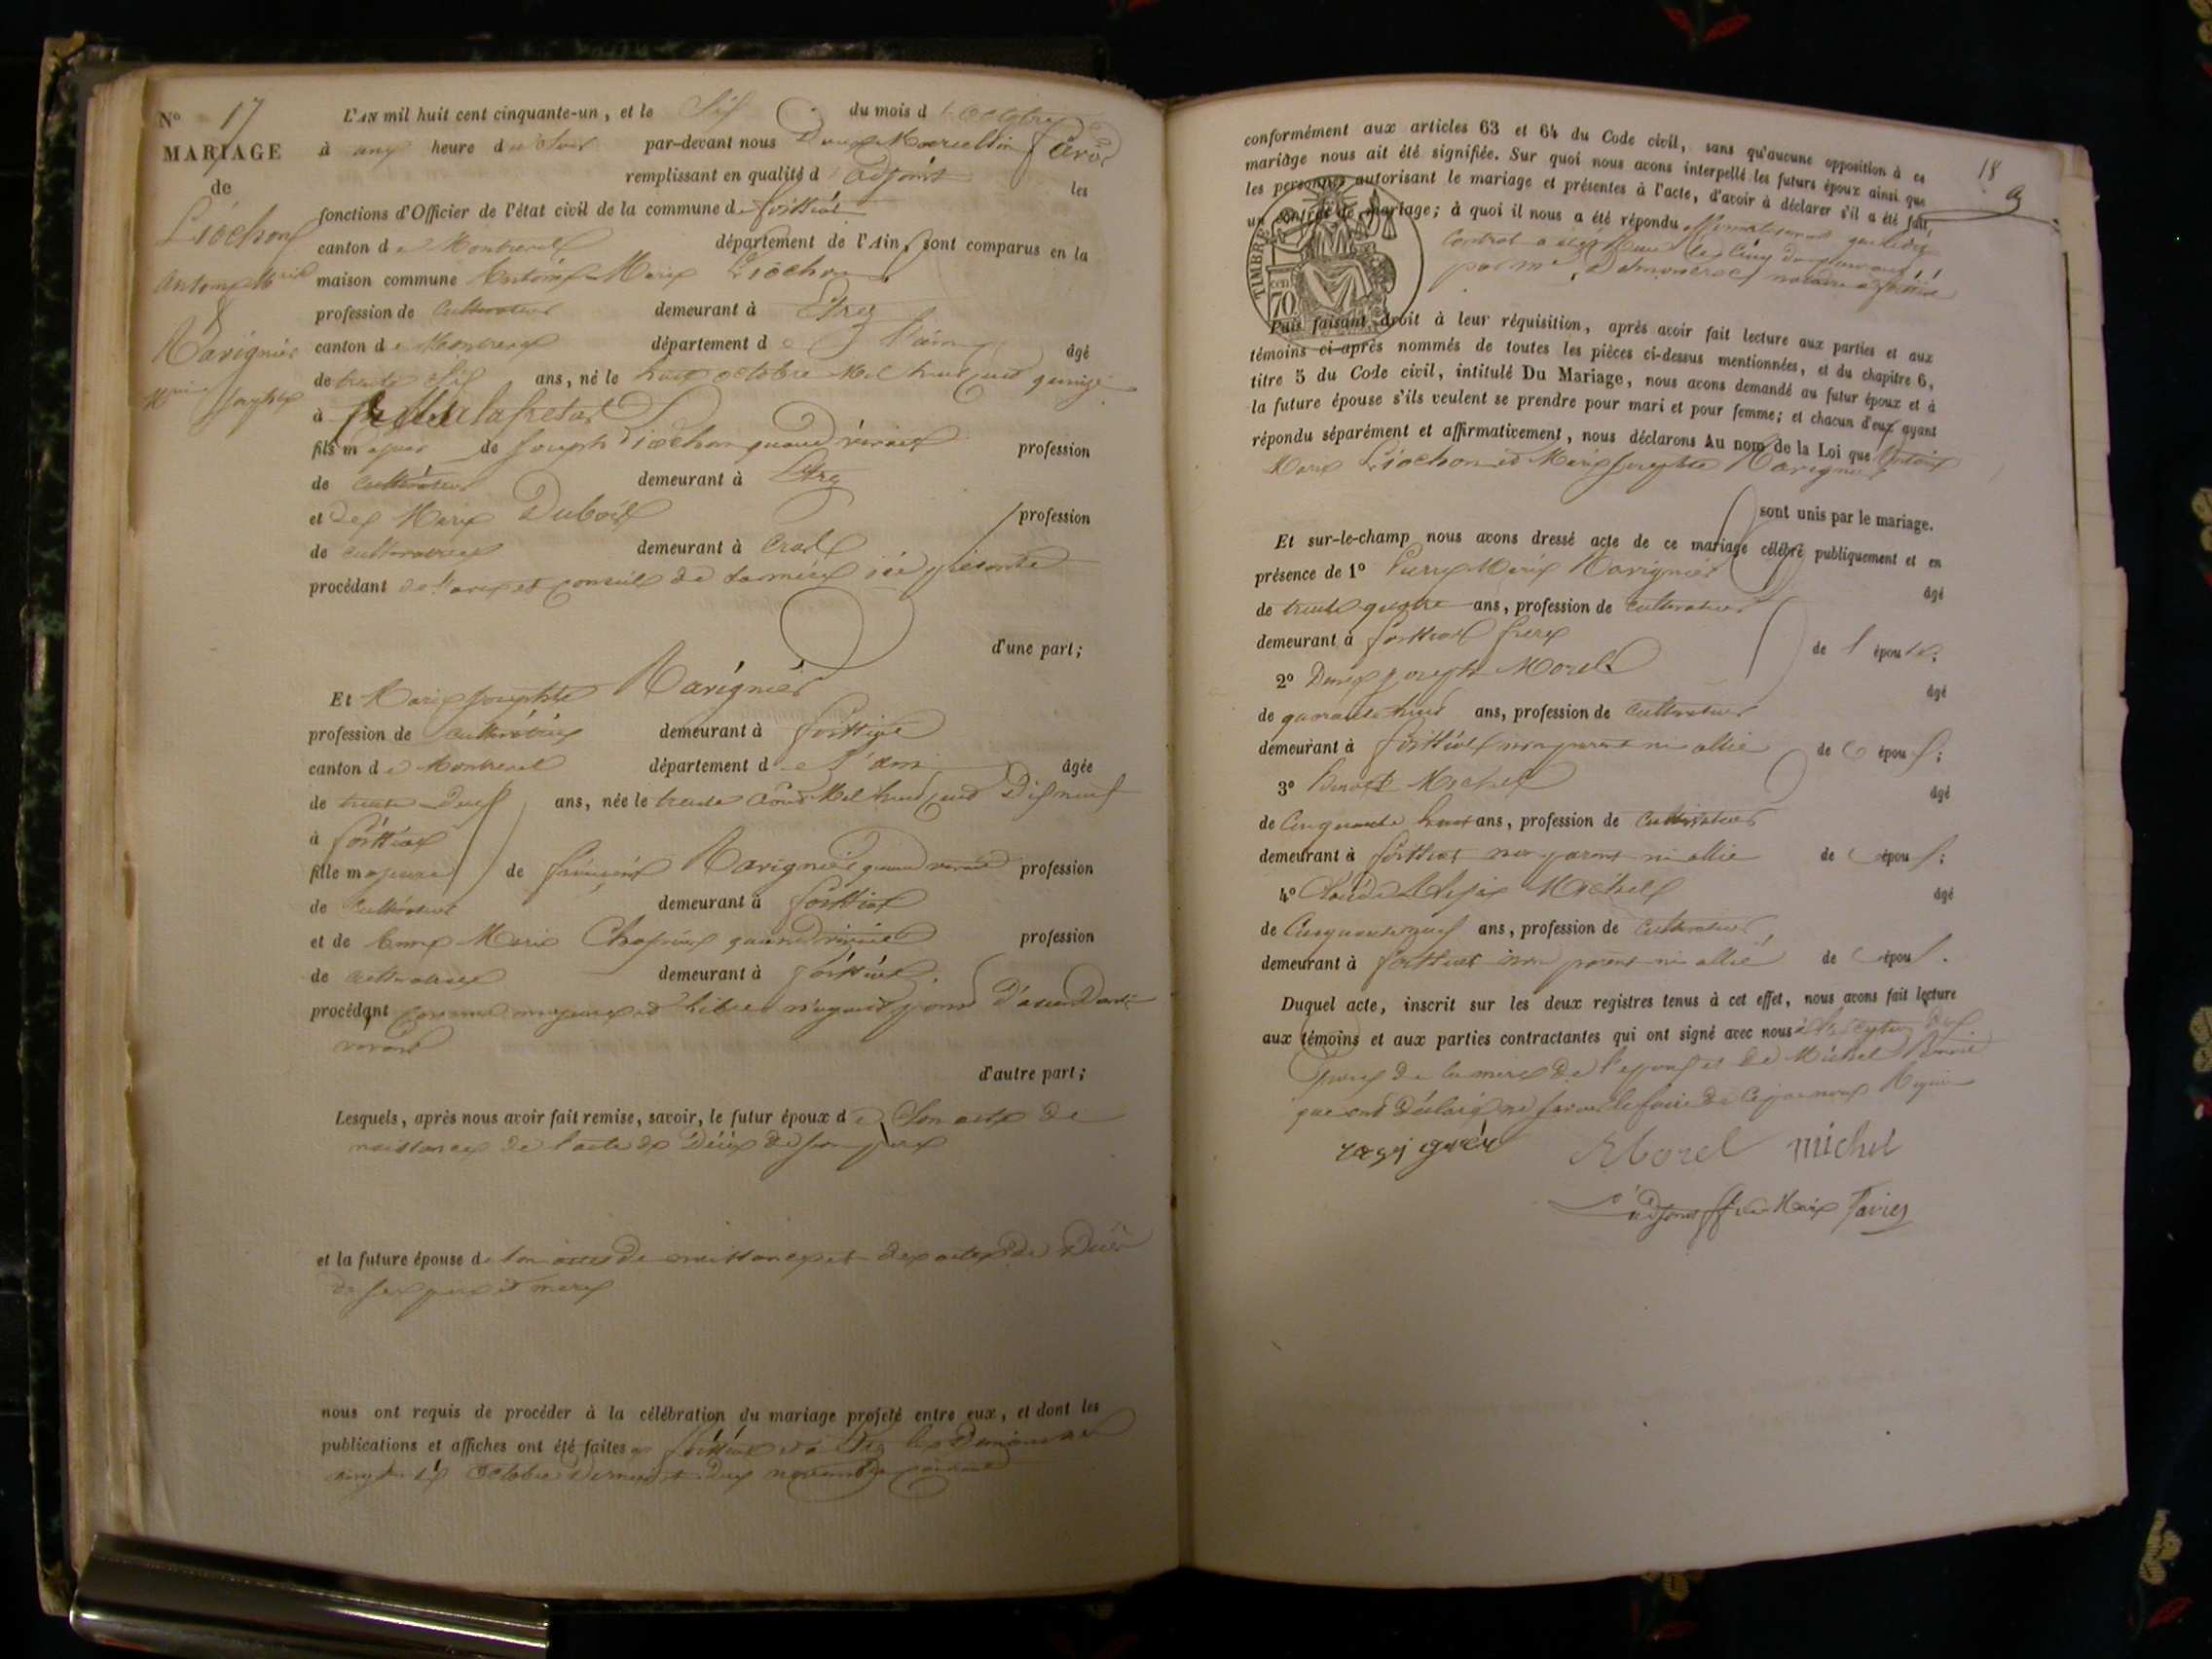 N° 17
MARIAGE
de
Liochon
Antoine Marie
&
Ravignier
Marie Josephte
L'AN mil huit cent cinquante-un, et le Six du mois d
à une heure du soir par-devant nous Marcellin
remplissant en qualité d' adjoint les
fonctions d'Officier de l'état civil de la commune de foissiat
canton de Montrevel département de l'Ain, sont comparus en la
maison commune Antoine Marie Liochon
profession de Cultivateur demeurant à Etrez
canton de Montrevel département de l'ain âgé
de trente Six ans, né le huit octobre Mil huit cent quinze
à
fils majeur de Joseph Liochon quand vivait profession
de Cultivateur demeurant à Etrez
et de Marie Dubois profession
de cultivatrice demeurant à
procédant de l'avis et conseil de sa mère ici présente
d'une part;
Et Marie Josephte Ravignier
profession de Cultivatrice demeurant à foissiat
canton de Montrevel département de l'ain âgée
de trente Deux ans, née le trente Août Mil huit cent Dix neuf
à foissiat
fille majeure de Ravignier quand vivait profession
de Cultivateur demeurant à foissiat
et de Anne Marie quand vivait profession
de cultivatrice demeurant à foissiat
procédant comme majeure et libre n'ayant point D'ascendants
vivant
d'autre part;
Lesquels, après nous avoir fait remise, savoir, le futur époux de Son acte de
naissance de l'acte de Décès de son père
et la future épouse de son acte de naissance et des actes de Décès
de ses père et mère
nous ont requis de procéder à la célébration du mariage projeté entre eux, et dont les
publications et affiches ont été faites à foissiat et à Etrez les Dimanches
vingt six Octobre Dernier et Deux novembre
18
conformément aux articles 63 et 64 du Code civil, sans qu'aucune opposition à ce
mariage nous ait été signifiée. Sur quoi nous avons interpellé les futurs époux ainsi que
les personnes autorisant le mariage et présentes à l'acte, d'avoir à déclarer s'il a été fait
un contrat de mariage; à quoi il nous a été répondu
Contrat a été reçu le Cinq
par Me notaire à foissiat
TIMBRE
cen
70
Puis faisant droit à leur réquisition, après avoir fait lecture aux parties et aux
témoins ci-après nommés de toutes les pièces ci-dessus mentionnées, et du chapitre 6,
titre 5 du Code civil, intitulé Du Mariage, nous avons demandé au futur époux et à
la future épouse s'ils veulent se prendre pour mari et pour femme; et chacun d'eux ayant
répondu séparément et affirmativement, nous déclarons Au nom de la Loi que Antoine
Marie Liochon et Marie Josephte Ravignier
sont unis par le mariage.
Et sur-le-champ nous avons dressé acte de ce mariage célébré publiquement et en
présence de 1° Pierre Marie Ravignier âgé
de trente quatre ans, profession de Cultivateur
demeurant à foissiat frère de l'épouse;
2° Joseph Morel âgé
de quarante huit ans, profession de Cultivateur
demeurant à foissiat non parent ni allié de époux;
3° Benoit Michel âgé
de Cinquante huit ans, profession de Cultivateur
demeurant à foissiat non parent ni allié de époux;
4° Claude Michel âgé
de Cinquante neuf ans, profession de Cultivateur
demeurant à foissiat non parent ni allié de époux.
Duquel acte, inscrit sur les deux registres tenus à cet effet, nous avons fait lecture
aux témoins et aux parties contractantes qui ont signé avec nous à l'exception des
époux de la mère de l'époux et de Michel Benoit
qui ont déclaré ne savoir le faire de ce par nous Requis
Morel michel
L'adjoint